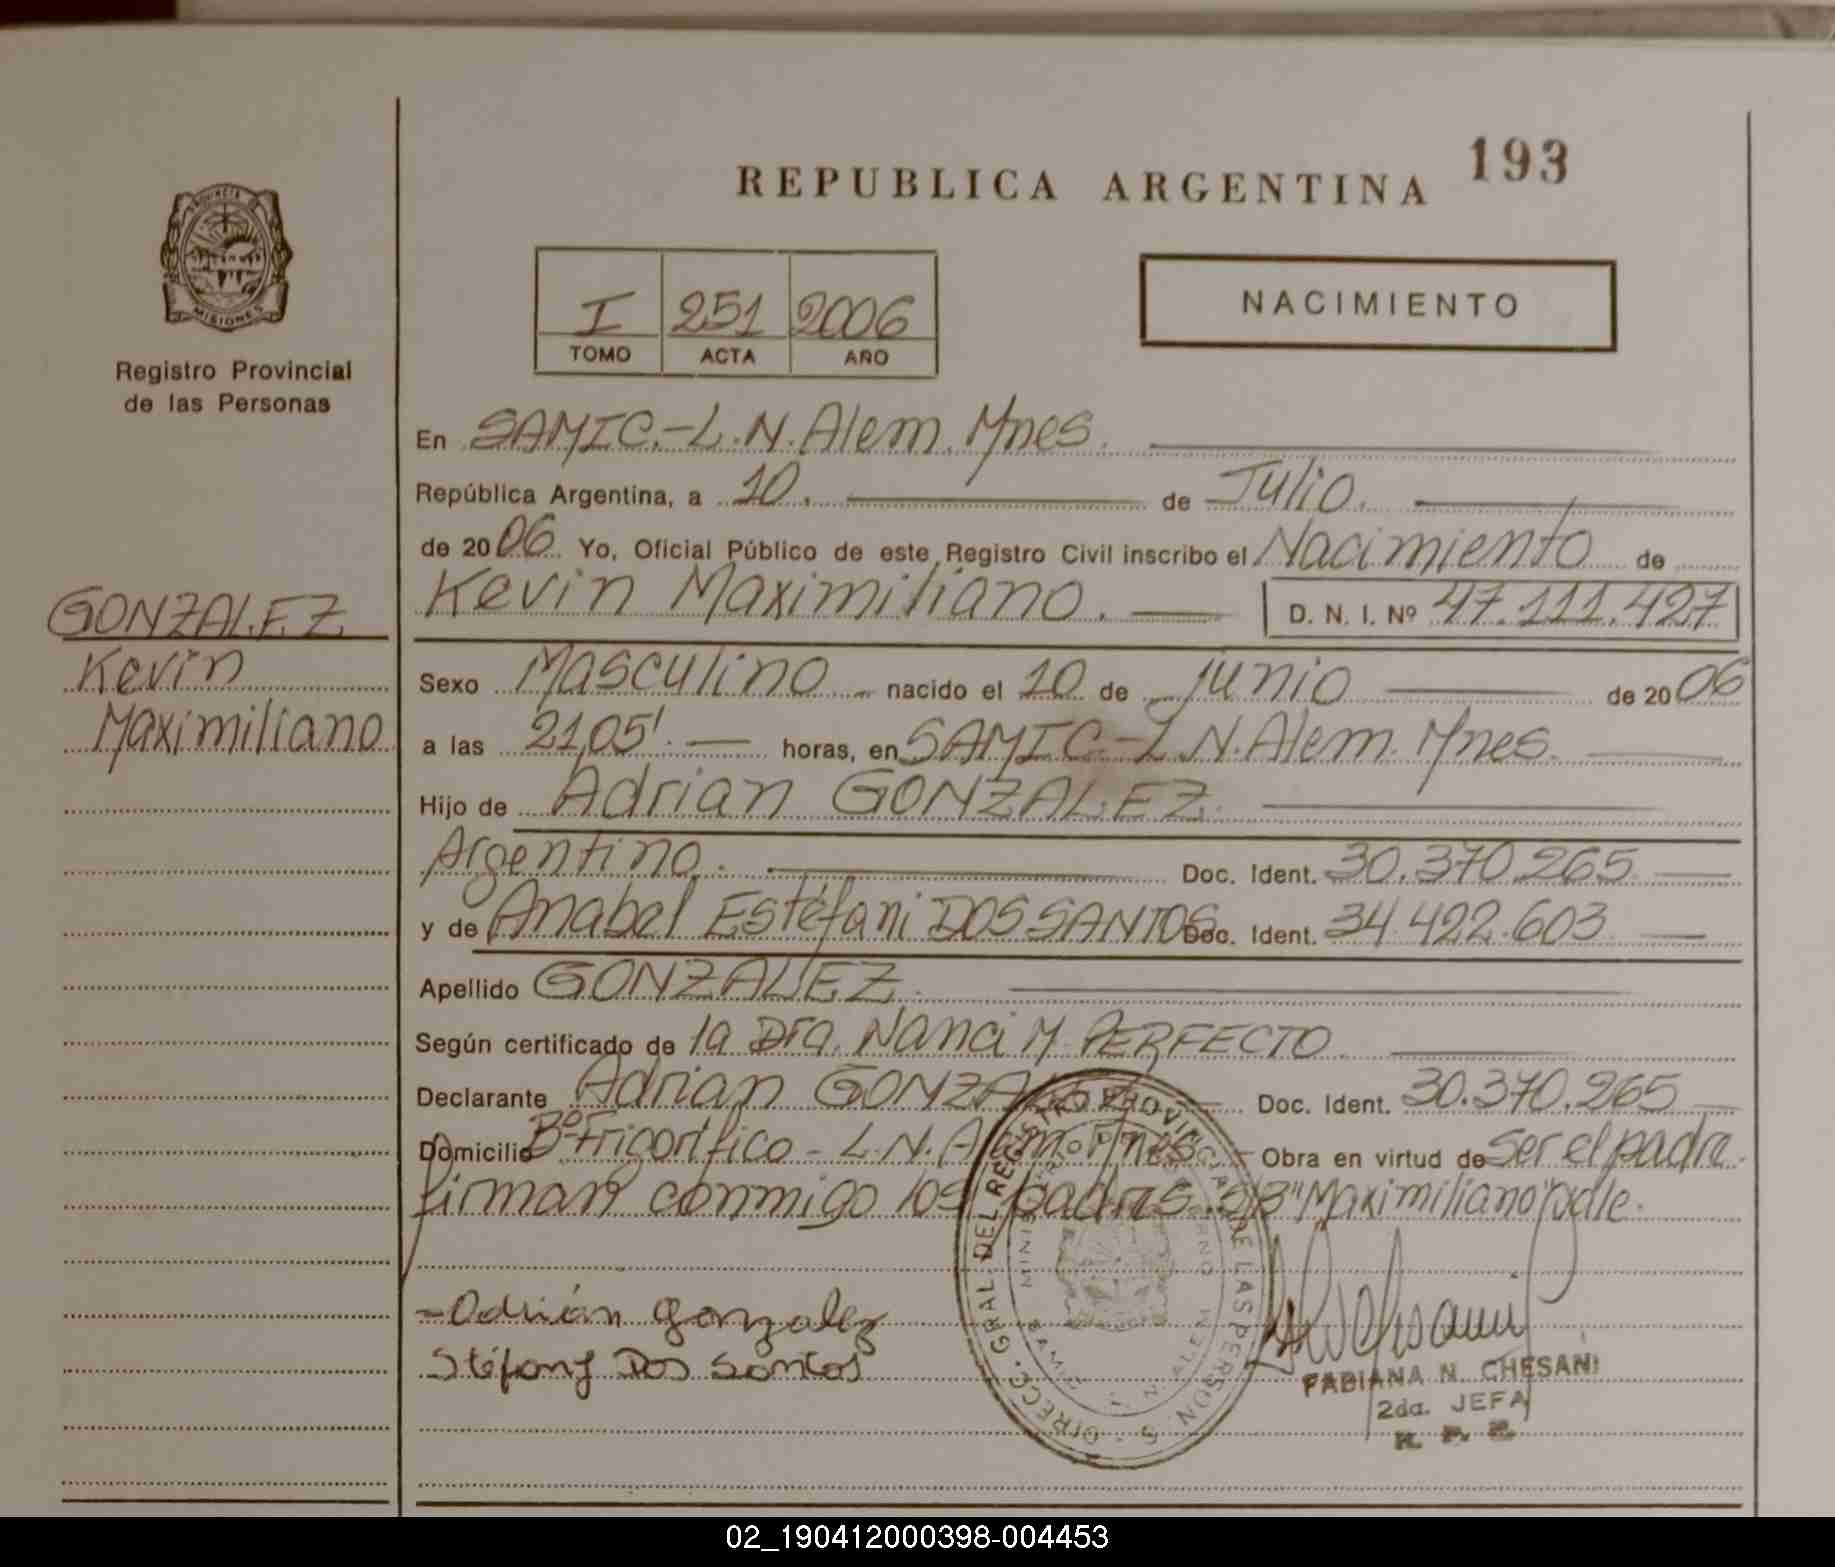 193
REPUBLICA ARGENTINA
PROVINCIA DE
MISIONES
I 251 2006
TOMO ACTA AÑO
NACIMIENTO
Registro Provincial
de las Personas
En SAMIC.-L.N. Alem. Mnes.
República Argentina, a 10. de Julio.
de 2006 Yo, Oficial Público de este Registro Civil inscribo el Nacimiento de
Kevin Maximiliano. D. N. I. Nº 47.111.427
GONZALEZ
Kevin
Maximiliano
Sexo Masculino nacido el 10 de junio de 2006
a las 21,05'. horas, en SAMIC.-L.N. Alem. Mnes.
Hijo de Adrian GONZALEZ.
Argentino. Doc. Ident. 30.370.265
y de Anabel Estéfani DOS SANTOS Doc. Ident. 34.422.603
Apellido GONZALEZ.
Según certificado de la Dra. Nanci M. PERFECTO
Declarante Adrian GONZALEZ Doc. Ident. 30.370.265
Domicilio Bº Frigorífico - L.N. Alem Mnes Obra en virtud de Ser el padre.
firman conmigo los padres. S/B "Maximiliano" vale.
DIRECC. GRAL DEL REGISTRO PROVINCIAL DE LAS PERSON. S
-Adrián Gonzalez
Stéfany Dos Santos
FABIANA N. CHESANI
2da. JEFA
R. P. P.
02_190412000398-004453